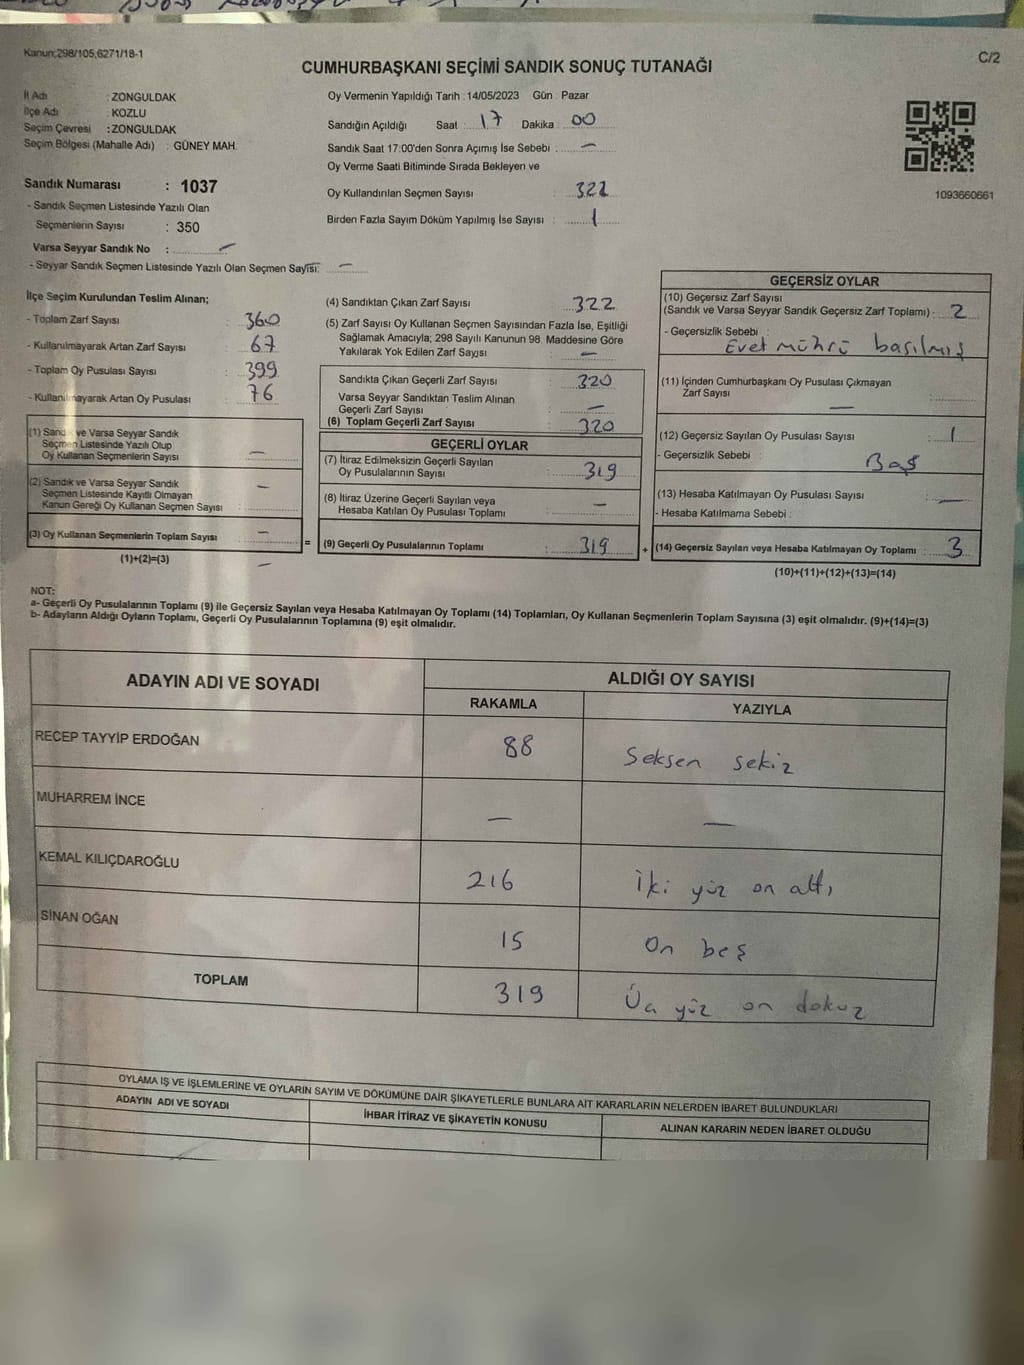 Kanun;298/105,6271/18-1
C/2
CUMHURBAŞKANI SEÇİMİ SANDIK SONUÇ TUTANAĞI
İl Adı : ZONGULDAK
İlçe Adı : KOZLU
Seçim Çevresi : ZONGULDAK
Seçim Bölgesi (Mahalle Adı) : GÜNEY MAH.
Sandık Numarası : 1037
- Sandık Seçmen Listesinde Yazılı Olan
Seçmenlerin Sayısı : 350
Varsa Seyyar Sandık No : —
- Seyyar Sandık Seçmen Listesinde Yazılı Olan Seçmen Sayısı: —
Oy Vermenin Yapıldığı Tarih : 14/05/2023 Gün : Pazar
Sandığın Açıldığı Saat : 17 Dakika : 00
Sandık Saat 17:00'den Sonra Açımış İse Sebebi : —
Oy Verme Saati Bitiminde Sırada Bekleyen ve
Oy Kullandırılan Seçmen Sayısı : 322
Birden Fazla Sayım Döküm Yapılmış İse Sayısı : 1
1093660661
İlçe Seçim Kurulundan Teslim Alınan;
- Toplam Zarf Sayısı : 360
- Kullanılmayarak Artan Zarf Sayısı : 67
- Toplam Oy Pusulası Sayısı : 399
- Kullanılmayarak Artan Oy Pusulası : 76
(1) Sandık ve Varsa Seyyar Sandık
Seçmen Listesinde Yazılı Olup
Oy Kullanan Seçmenlerin Sayısı : —
(2) Sandık ve Varsa Seyyar Sandık
Seçmen Listesinde Kayıtlı Olmayan
Kanun Gereği Oy Kullanan Seçmen Sayısı : —
(3) Oy Kullanan Seçmenlerin Toplam Sayısı : —
(1)+(2)=(3) —
=
(4) Sandıktan Çıkan Zarf Sayısı : 322
(5) Zarf Sayısı Oy Kullanan Seçmen Sayısından Fazla İse, Eşitliği
Sağlamak Amacıyla; 298 Sayılı Kanunun 98. Maddesine Göre
Yakılarak Yok Edilen Zarf Sayısı : —
Sandıkta Çıkan Geçerli Zarf Sayısı : 320
Varsa Seyyar Sandıktan Teslim Alınan
Geçerli Zarf Sayısı : —
(6) Toplam Geçerli Zarf Sayısı : 320
GEÇERLİ OYLAR
(7) İtiraz Edilmeksizin Geçerli Sayılan
Oy Pusulalarının Sayısı : 319
(8) İtiraz Üzerine Geçerli Sayılan veya
Hesaba Katılan Oy Pusulası Toplamı : —
(9) Geçerli Oy Pusulalarının Toplamı : 319
+
GEÇERSİZ OYLAR
(10) Geçersiz Zarf Sayısı
(Sandık ve Varsa Seyyar Sandık Geçersiz Zarf Toplamı) : 2
- Geçersizlik Sebebi :
Evet mührü basılmış
(11) İçinden Cumhurbaşkanı Oy Pusulası Çıkmayan
Zarf Sayısı : —
(12) Geçersiz Sayılan Oy Pusulası Sayısı : 1
- Geçersizlik Sebebi : Boş
(13) Hesaba Katılmayan Oy Pusulası Sayısı : —
- Hesaba Katılmama Sebebi :
(14) Geçersiz Sayılan veya Hesaba Katılmayan Oy Toplamı : 3
(10)+(11)+(12)+(13)=(14)
NOT:
a- Geçerli Oy Pusulalarının Toplamı (9) ile Geçersiz Sayılan veya Hesaba Katılmayan Oy Toplamı (14) Toplamları, Oy Kullanan Seçmenlerin Toplam Sayısına (3) eşit olmalıdır. (9)+(14)=(3)
b- Adayların Aldığı Oyların Toplamı, Geçerli Oy Pusulalarının Toplamına (9) eşit olmalıdır.
ADAYIN ADI VE SOYADI
ALDIĞI OY SAYISI
RAKAMLA YAZIYLA
RECEP TAYYİP ERDOĞAN 88 Seksen sekiz
MUHARREM İNCE — —
KEMAL KILIÇDAROĞLU 216 İki yüz on altı
SİNAN OĞAN 15 On beş
TOPLAM 319 Üç yüz on dokuz
OYLAMA İŞ VE İŞLEMLERİNE VE OYLARIN SAYIM VE DÖKÜMÜNE DAİR ŞİKAYETLERLE BUNLARA AİT KARARLARIN NELERDEN İBARET BULUNDUKLARI
ADAYIN ADI VE SOYADI İHBAR İTİRAZ VE ŞİKAYETİN KONUSU ALINAN KARARIN NEDEN İBARET OLDUĞU